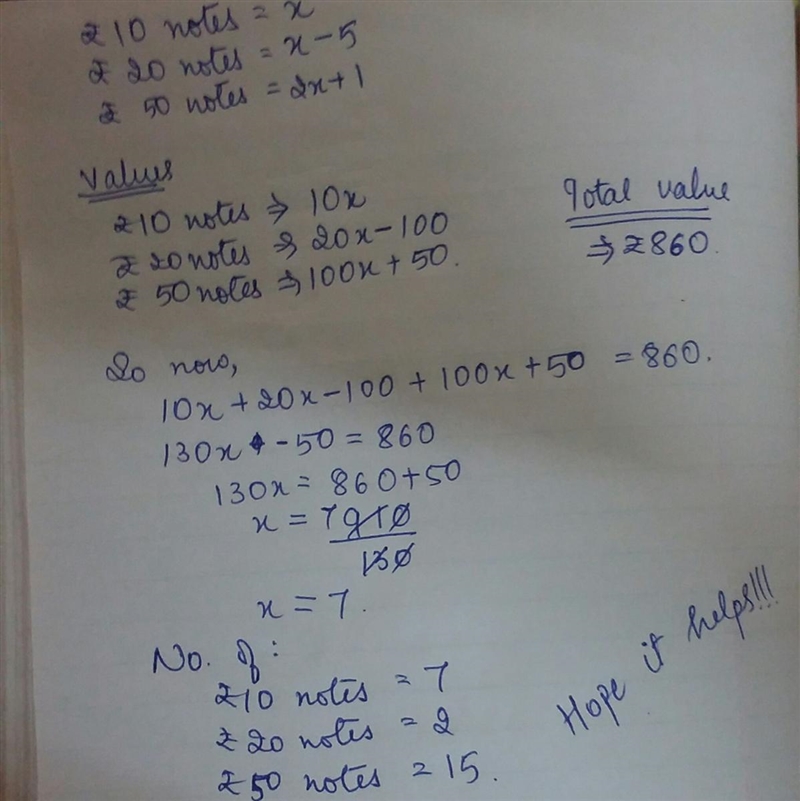 ₹ 10 notes = x
₹ 20 notes = x - 5
₹ 50 notes = 2x + 1
Values
₹ 10 notes ⇒ 10x
₹ 20 notes ⇒ 20x - 100
₹ 50 notes ⇒ 100x + 50.
Total value
⇒ ₹ 860.
So now,
10x + 20x - 100 + 100x + 50 = 860.
130x - 50 = 860
130x = 860 + 50
x = 7 910
130
x = 7.
No. of :
₹ 10 notes = 7
₹ 20 notes = 2
₹ 50 notes = 15.
Hope it helps!!!